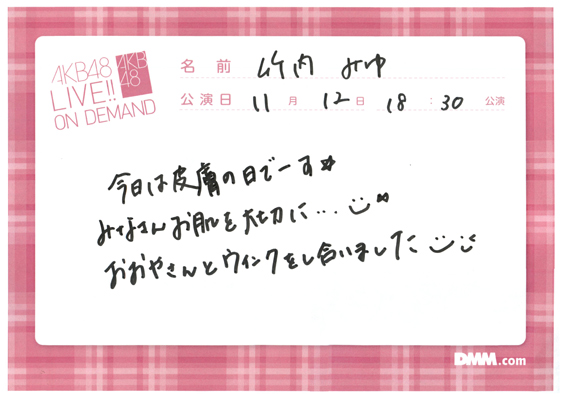 AKB48
LIVE!!
ON DEMAND
AKB
48
名前 竹内 みゆ
公演日 11月 12日 18:30 公演
今日は皮膚の日でーす☆
みなさんお肌を大切に…
おおやさんとウィンクをし合いました
DMM.com